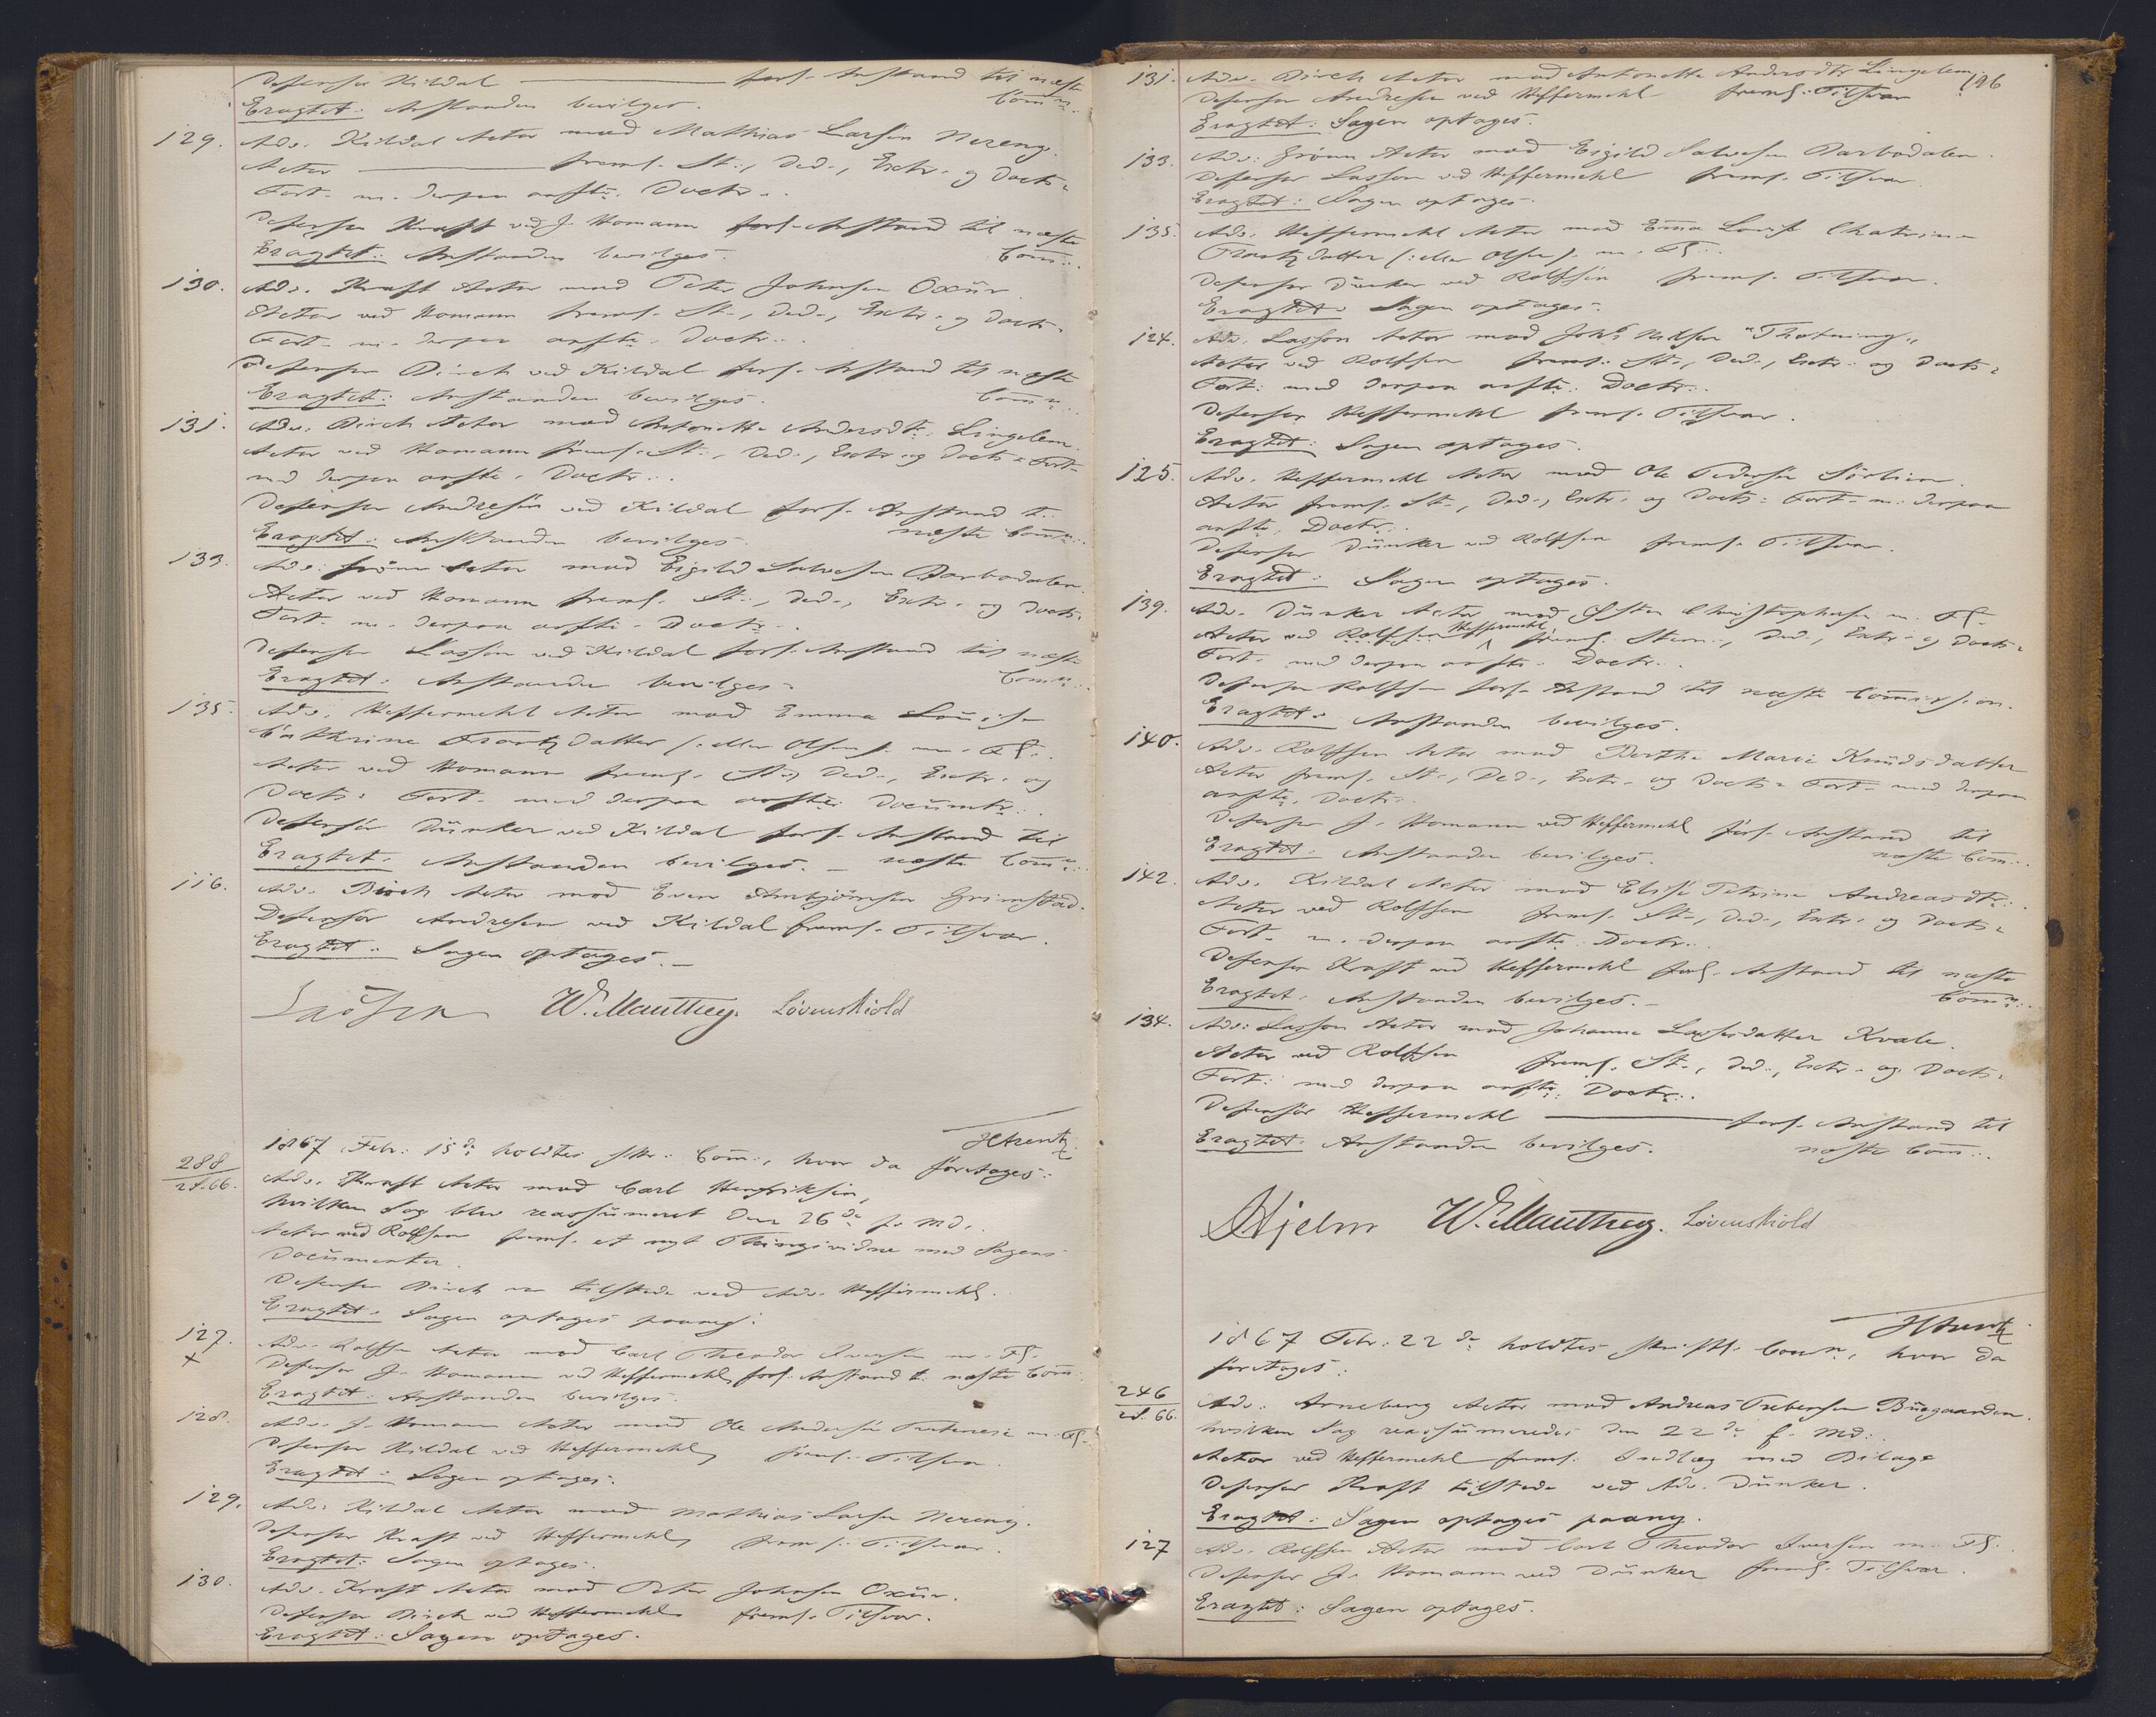 Defensor Kildal forl. Anstand til næste
Eragtet: Anstanden bevilges. Comm:
129. Adv. Kildal Actor mod Mathias Larsen Nereng.
Actor freml. St., Ded., Extr. og Docts
Fort. m. derpaa anfte. Doctr.
Defensor Kraft ved J. Homann forl. Anstand til næste
Eragtet: Anstanden bevilges. Com:
130. Adv. Kraft Actor mod Peter Johnsen Oxiir.
Actor ved Homann freml. St., Ded., Extr. og Docts
Fort. m. derpaa anfte. Doctr.
Defensor Birch ved Kildal forl. Anstand til næste
Eragtet: Anstanden bevilges. Comm:
131. Adv. Birch Actor mod Antonette Andersdtr. Lingelem
Actor ved Homann freml. St., Ded., Extr. og Docts Fort.
md derpaa anfte. Doctr.
Defensor Andresen ved Kildal forl. Anstand t.
Eragtet: Anstanden bevilges. næste Comm:
133. Adv. Grönn Actor mod Eigild Salvesen Barbodalen.
Actor ved Homann freml. St., Ded., Extr. og Docts
Fort. m. derpaa anfte. Doctr.
Defensor Lasson ved Kildal forl. Anstand til næste
Eragtet: Anstanden bevilges. Comm:
135. Adv. Heffermehl Actor mod Emma Louise
Cathrine Frantzdatter (: eller Olsen :) m. Fl.
Actor ved Homann freml. St., Ded., Extr. og
Docts Fort. med derpaa anfte Documtr.
Defensör Dünker ved Kildal forl. Anstand til
Eragtet. Anstanden bevilges. – næste Comm:
116. Adv. Birch Actor mod Even Arnbjörnsen Grimstad.
Defensör Andresen ved Kildal freml. Tilsvar.
Eragtet: Sagen optages. –
W. Manthey. Lövenskiold
HArentz
1867 Febr: 15de holdtes skr. Com:, hvor da foretages:
288/2S.66. Adv. Kraft Actor mod Carl Henriksen,
hvilken Sag blev reassümeret den 26de f. Md.
Actor ved Rolfsen freml. et nyt Thingsvidne med Sagens
Documenter.
Defensor Birch var tilstede ved Adv. Heffermehl.
Eragtet: Sagen optages paany.
127. Adv. Rolfsen Actor mod Carl Theodor Iversen m. Fl.
x Defensor J. Homann ved Heffermehl forl. Anstand t. næste Com:
Eragtet: Anstanden bevilges.
128. Adv. J. Homann Actor mod Ole Andersen m. Fl.
Defensor Kildal ved Heffermehl freml. Tilsvar.
Eragtet: Sagen optages.
129. Adv: Kildal Actor mod Mathias Larsen Nereng.
Defensor Kraft ved Heffermehl freml. Tilsvar.
Eragtet: Sagen optages.
130. Adv. Kraft Actor mod Peter Johnsen Oxiir.
Defensor Birch ved Heffermehl freml. Tilsvar.
Eragtet: Sagen optages.
196
131. Adv. Birch Actor mod Antonette Andersdtr Lingelem
Defensor Andresen ved Heffermehl freml. Tilsvar
Eragtet: Sagen optages.
133. Adv: Grönn Actor mod Eigild Salvesen Barbodalen.
Defensor Lasson ved Heffermehl freml. Tilsvar.
Eragtet: Sagen optages.
135. Adv. Heffermehl Actor mod Ema Lovise Chatrine
Frantzdatter (: eller Olsen :) m. Fl.
Defensor Dünker ved Rolfsen freml. Tilsvar.
Eragtet: Sagen optages.
124. Adv. Lasson Actor mod Johs Nilsen
Actor ved Rolfsen freml. St., Ded., Extr. og Docts
Fort: med derpaa anfte. Doctr.
Defensor Heffermehl freml. Tilsvar.
Eragtet: Sagen optages.
125. Adv. Heffermehl Actor mod Ole Pedersen Sörlien.
Actor freml. St., Ded., Extr. og Docts Fort. m. derpaa
anfte. Doctr.
Defensor Dünker ved Rolfsen freml. Tilsvar.
Eragtet: Sagen optages.
139. Adv. Dünker Actor mod Østen Christophersen m. Fl.
Actor ved Rolfsen Heffermehl freml. Stevn., Ded., Extr. og Docts
Fort. med derpaa anfte. Doctr.
Defensor Rolfsen forl. Anstand til næste Commission.
Eragtet: Anstanden bevilges.
140. Adv. Rolfsen Actor mod Berthe Marie Knüdsdatter
Actor freml. St., Ded., Extr. og Docts Fort. med derpaa
anfte. Doctr.
Defensor J. Homann ved Heffermehl forl. Anstand til
Eragtet: Anstanden bevilges. næste Com:
142. Adv. Kildal Actor mod Elise Petrine Andreasdtr.
Actor ved Rolfsen freml. St., Ded., Extr. og Docts
Fort. m. derpaa anfte. Doctr.
Defensor Kraft ved Heffermehl forl. Anstand til næste
Eragtet. Anstanden bevilges. – Comm:
134. Adv: Lasson Actor mod Johanne Larsdatter Kvale.
Actor ved Rolfsen freml. St., Ded., Extr. og Docts
Fort: med derpaa anfte. Doctr.
Defensör Heffermehl forl. Anstand til
Eragtet: Anstanden bevilges. næste Com:
Hjelm W. Manthey. Lövenskiold
HArentz
1867 Febr. 22de holdtes skriftl. Comn., hvor da
foretages:
246/2S.66. Adv: Arneberg Actor mod Andreas Trebersen Büegaarden.
hvilken Sag reassümeredes den 22de f. Md:
Actor ved Heffermehl freml. Indlæg med Bilage
Defensor Kraft tilstede ved Adv. Dünker.
Eragtet: Sagen optages paany.
127 Adv. Rolfsen Actor mod Carl Theodor Iversen m. Fl.
Defensor J. Homann ved Dünker freml. Tilsvar.
Eragtet: Sagen optages.